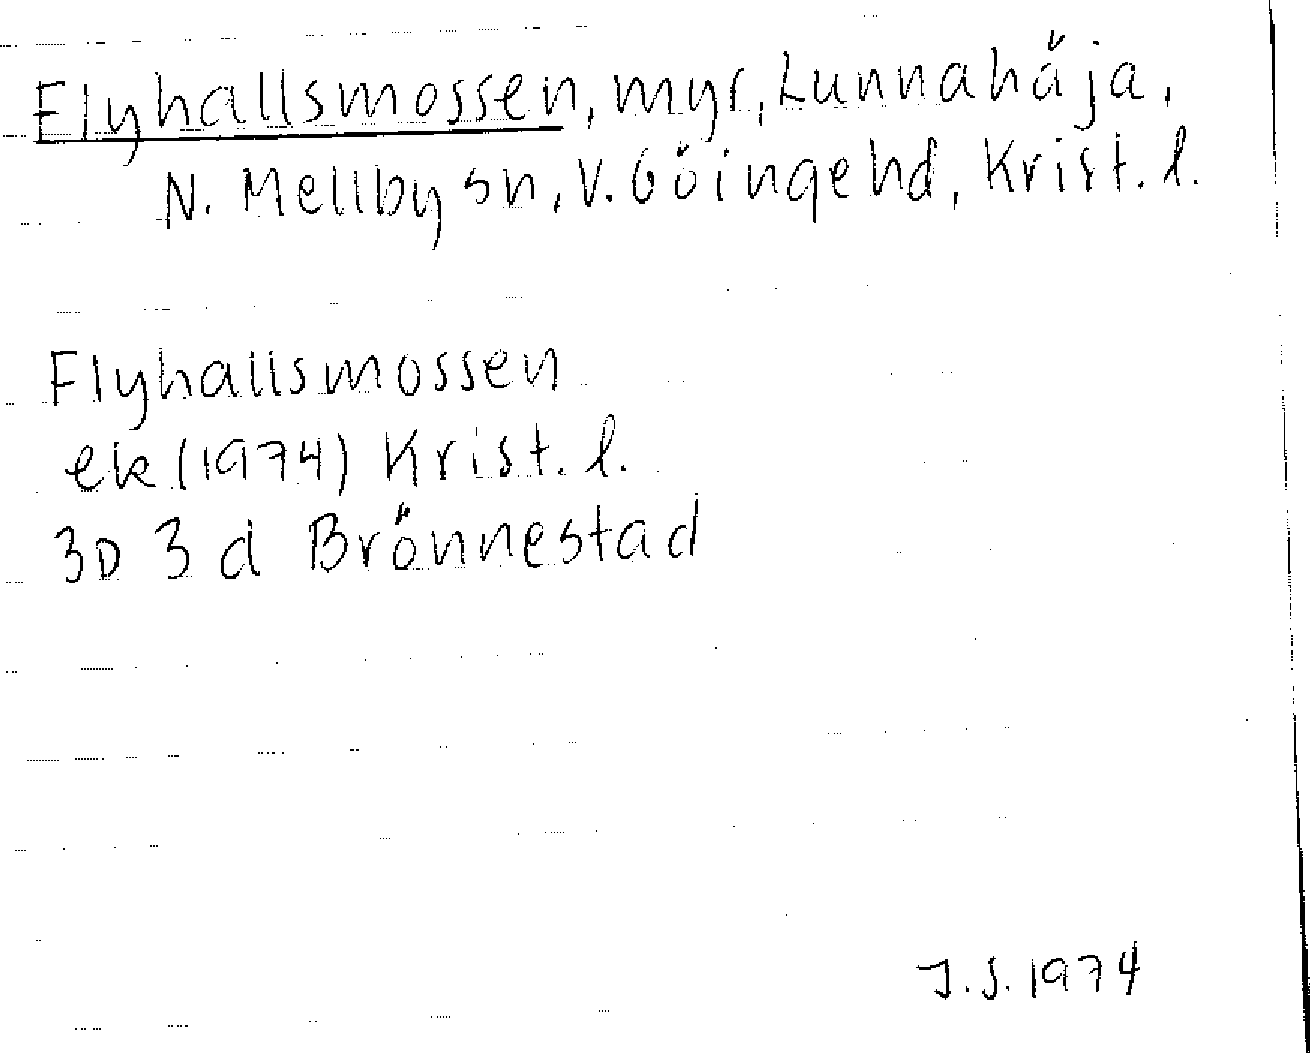 Flyhallsmossen, myr, Lunnahöja,
N. Mellby sn, V. Göingehd, Krist. l.
Flyhallsmossen
ek (1974) Krist. l.
3D 3 d Brönnestad
J.S. 1974